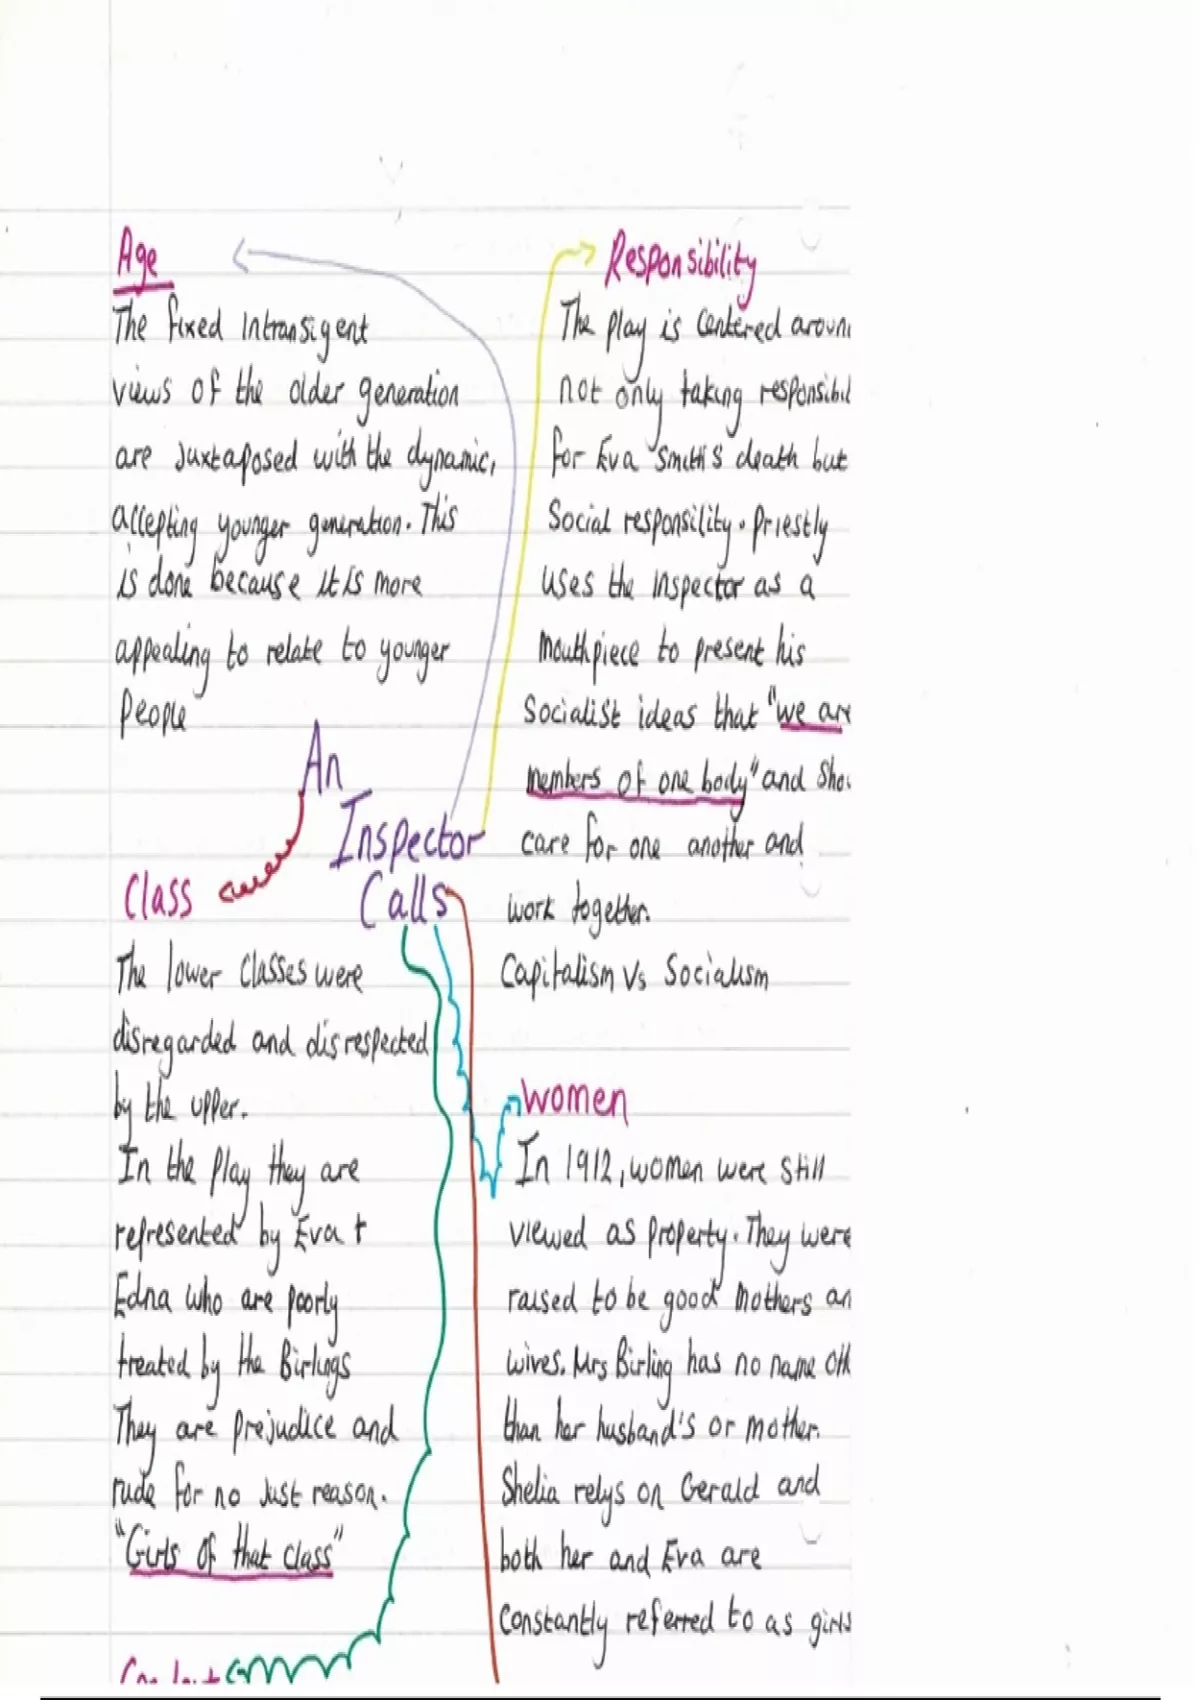 Age
The fixed intransigent
views of the older generation
are juxtaposed with the dynamic,
accepting younger generation. This
is done because it is more
appealing to relate to younger
people
Responsibility
The play is centered aroun
not only taking responsibil
for Eva Smith's death but
Social responsility. Priestly
uses the inspector as a
mouthpiece to present his
Socialist ideas that "we are
members of one body" and sho
care for one another and
work together.
Capitalism Vs Socialism
An
Inspector
Calls
Class
The lower classes were
disregarded and disrespected
by the upper.
In the play they are
represented by Eva +
Edna who are poorly
treated by the Birlings
They are prejudice and
rude for no just reason.
"Girls of that class"
Women
In 1912, women were still
viewed as property. They were
raised to be good mothers an
wives. Mrs Birling has no name oth
than her husband's or mother.
Shelia relys on Gerald and
both her and Eva are
constantly referred to as girls